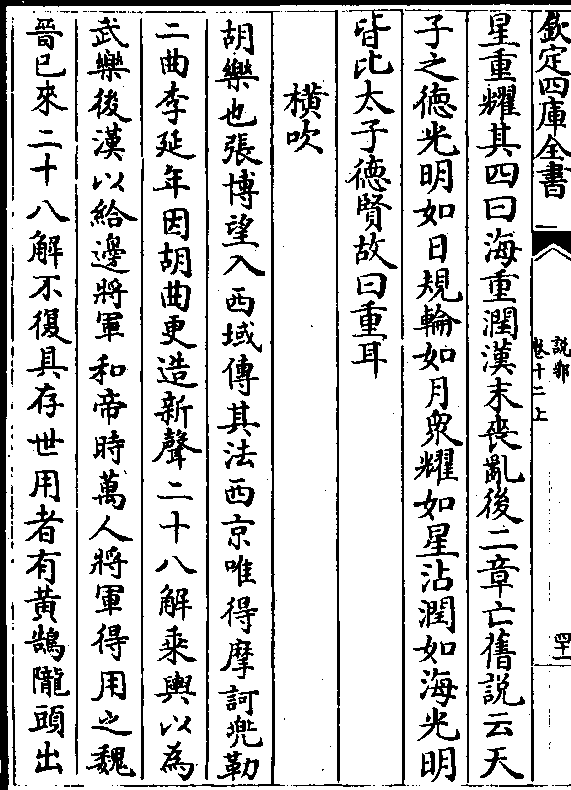 欽定四庫全書
說郛
卷十二上
四十一
星重耀其四曰海重潤漢末喪亂後二章亡舊說云天
子之德光明如日規輪如月眾耀如星沾潤如海光明
皆比太子德賢故曰重耳
橫吹
胡樂也張博望入西域傳其法西京唯得摩訶兜勒
二曲李延年因胡曲更造新聲二十八解乘輿以為
武樂後漢以給邊將軍和帝時萬人將軍得用之魏
晉已來二十八解不復具存世用者有黃鵠隴頭出